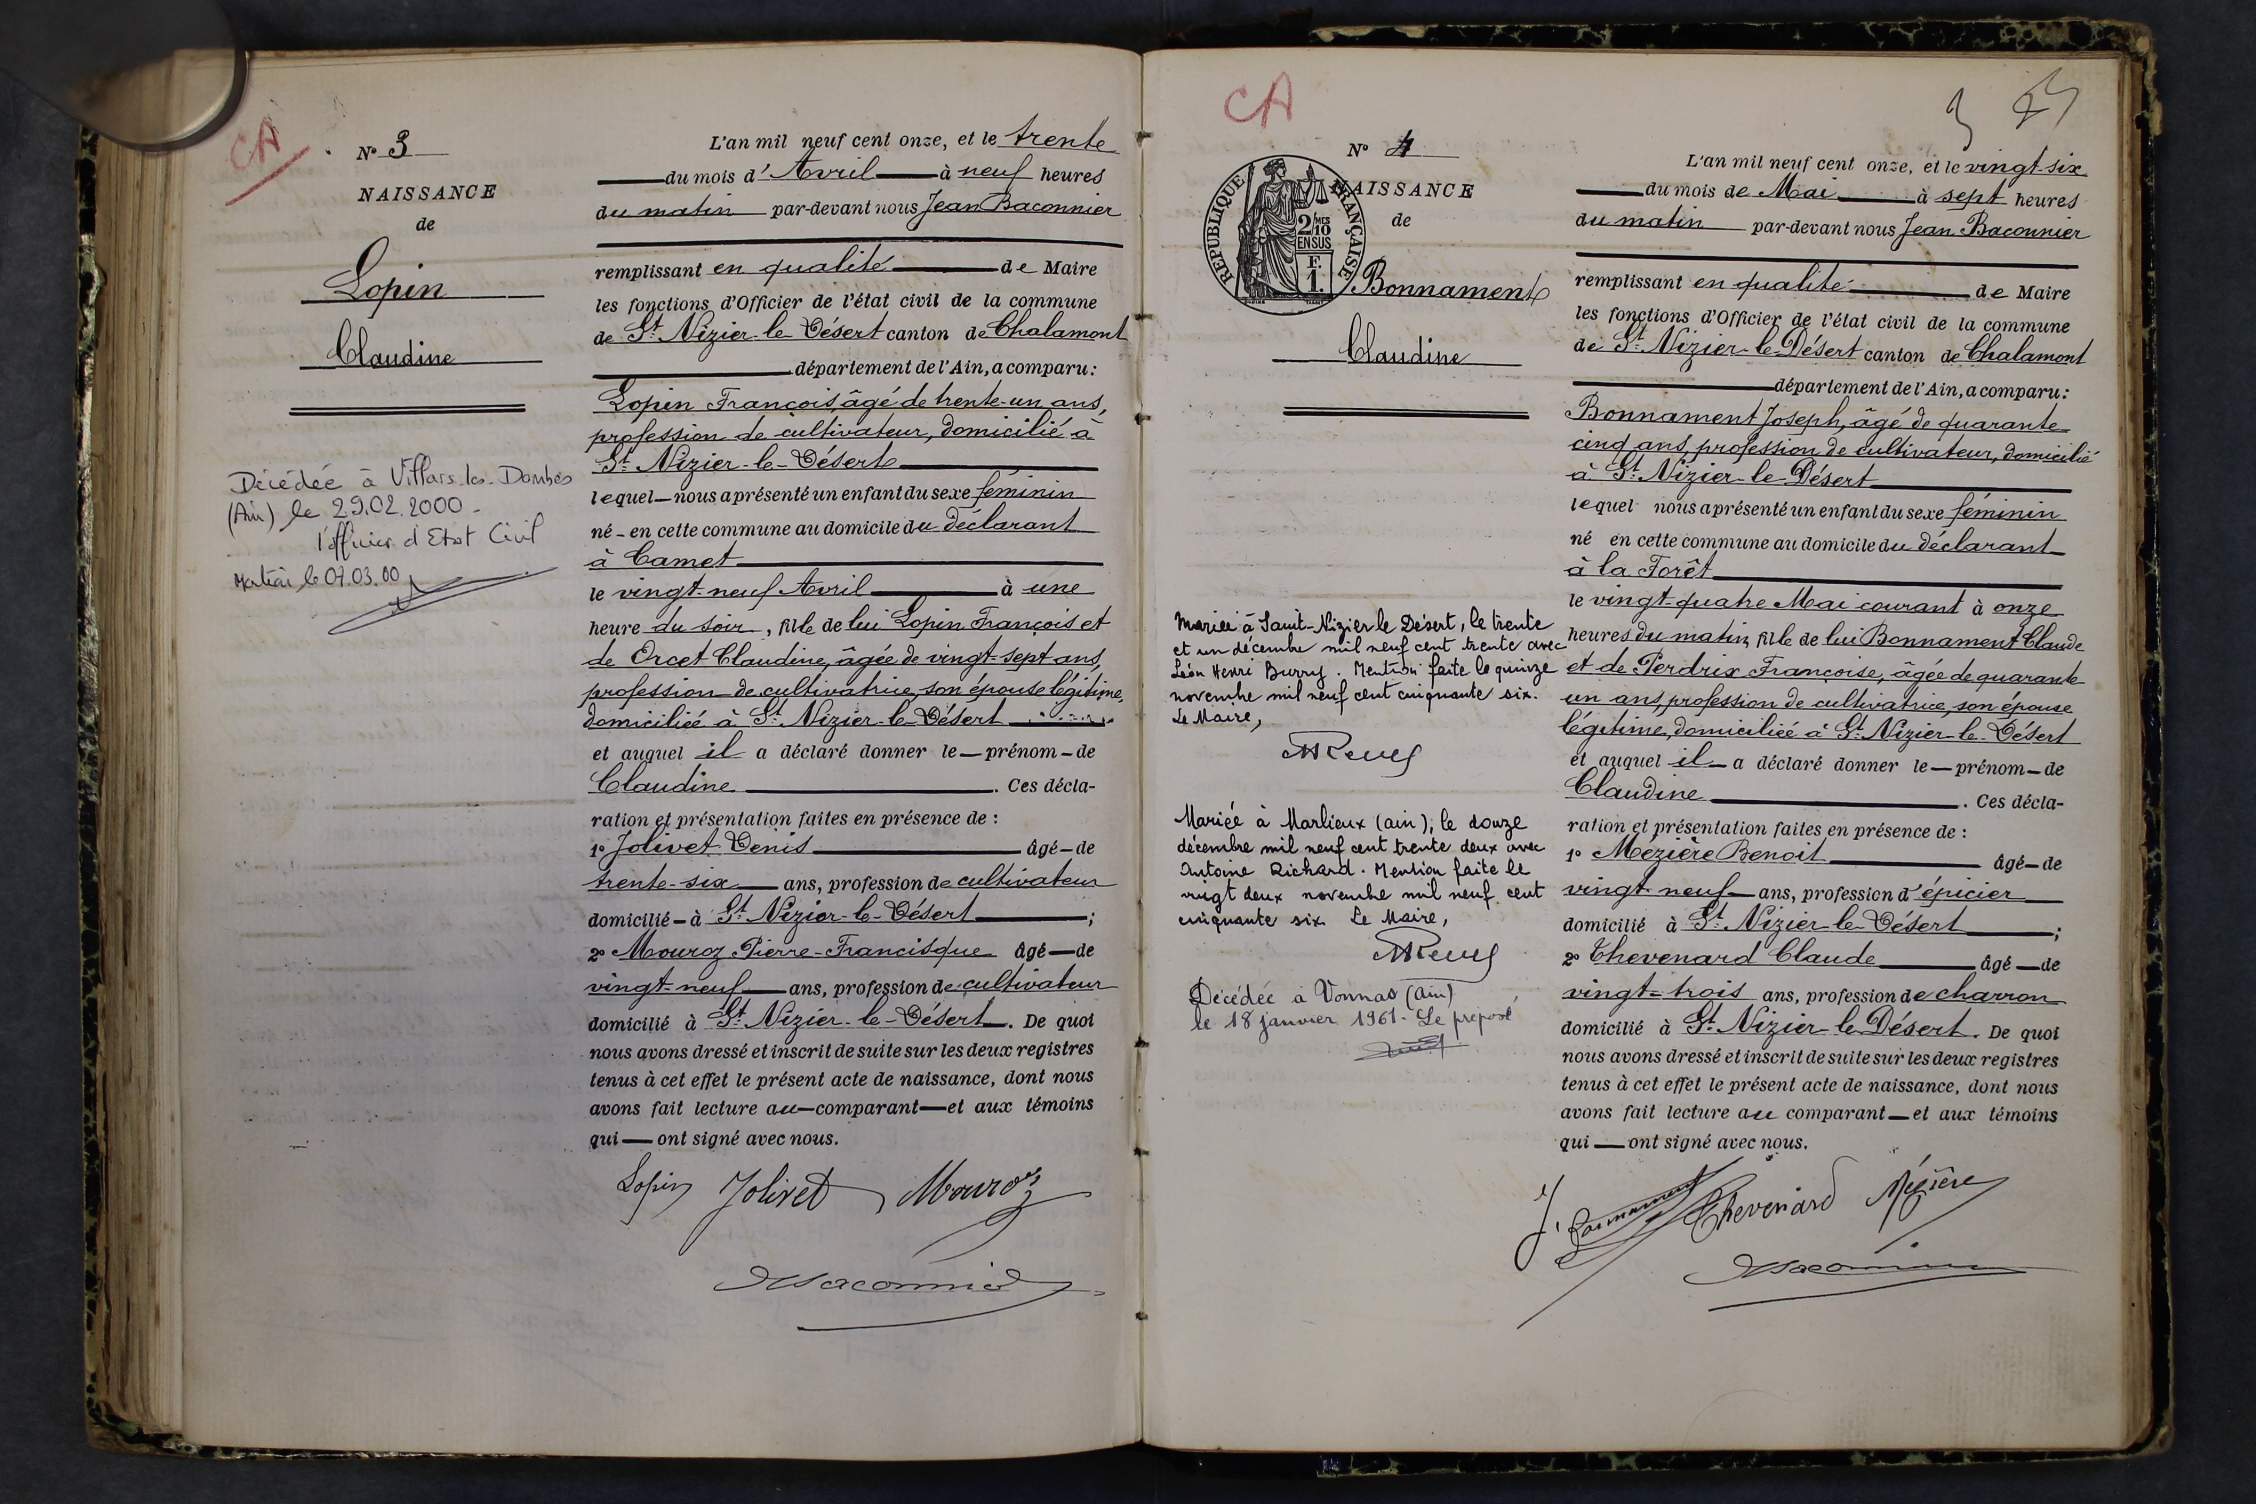 CA
N° 3
NAISSANCE
de
Lopin
Claudine
Décédée à Villars-les-Dombes
(Ain) le 29.02.2000 -
l'officier d'Etat Civil
le 07.03.00
L'an mil neuf cent onze, et le trente
du mois d'Avril à neuf heures
du matin par-devant nous Jean Baconnier
remplissant en qualité de Maire
les fonctions d'Officier de l'état civil de la commune
de St Nizier-le-Désert canton de Chalamont
département de l'Ain, a comparu :
Lopin François, âgé de trente-un ans,
profession de cultivateur, domicilié à
St Nizier-le-Désert
lequel nous a présenté un enfant du sexe féminin
né - en cette commune au domicile du déclarant
à Camet
le vingt-neuf Avril à une
heure du soir, fille de lui Lopin François et
de Orcet Claudine, âgée de vingt-sept ans,
profession de cultivatrice, son épouse légitime,
domiciliée à St Nizier-le-Désert
et auquel il a déclaré donner le prénom de
Claudine. Ces décla-
ration et présentation faites en présence de :
1° Jolivet Denis âgé de
trente-six ans, profession de cultivateur
domicilié à St Nizier-le-Désert ;
2° Mouroz Pierre-Francisque âgé de
vingt-neuf ans, profession de cultivateur
domicilié à St Nizier-le-Désert. De quoi
nous avons dressé et inscrit de suite sur les deux registres
tenus à cet effet le présent acte de naissance, dont nous
avons fait lecture au comparant et aux témoins
qui ont signé avec nous.
Lopin Jolivet Mouroz
JBaconnier
CA
3
N° 4
NAISSANCE
de
REPUBLIQUE FRANÇAISE
2 MES
10
EN SUS
F.
1.
Bonnament
Claudine
Mariée à Saint-Nizier le Désert, le trente
et un décembre mil neuf cent trente avec
Léon Henri Burry. Mention faite le quinze
novembre mil neuf cent cinquante six.
Le Maire,
Mariée à Marlieux (ain), le douze
décembre mil neuf cent trente deux avec
Antoine Richard. Mention faite le
vingt deux novembre mil neuf cent
cinquante six. Le Maire,
Décédée à Vonnas (Ain)
le 18 janvier 1961 - Le préposé
L'an mil neuf cent onze, et le vingt-six
du mois de Mai à sept heures
du matin par-devant nous Jean Baconnier
remplissant en qualité de Maire
les fonctions d'Officier de l'état civil de la commune
de St Nizier-le-Désert canton de Chalamont
département de l'Ain, a comparu :
Bonnament Joseph, âgé de quarante
cinq ans, profession de cultivateur, domicilié
à St Nizier-le-Désert
lequel nous a présenté un enfant du sexe féminin
né en cette commune au domicile du déclarant
à la Forêt
le vingt-quatre Mai courant à onze
heures du matin, fille de lui Bonnament Claude
et de Perdrix Françoise, âgée de quarante
un ans, profession de cultivatrice, son épouse
légitime, domiciliée à St Nizier-le-Désert
et auquel il a déclaré donner le prénom de
Claudine. Ces décla-
ration et présentation faites en présence de :
1° Mézière Benoit âgé de
vingt-neuf ans, profession d'épicier
domicilié à St Nizier-le-Désert ;
2° Chevenard Claude âgé de
vingt-trois ans, profession de charron
domicilié à St Nizier-le-Désert. De quoi
nous avons dressé et inscrit de suite sur les deux registres
tenus à cet effet le présent acte de naissance, dont nous
avons fait lecture au comparant et aux témoins
qui ont signé avec nous.
J. Bonnament Chevenard Mézière
JBaconnier